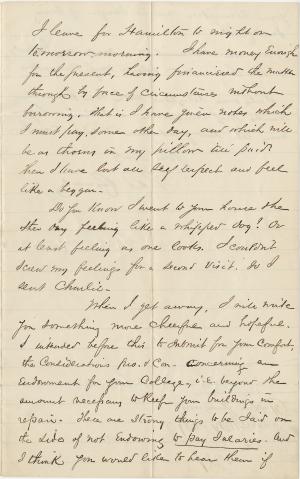 I leave for Hamilton to night or
tomorrow morning. I have money enough
for the present, having financiered the matter
through by force of circumstances without
borrowing. That is I have given notes which
I must pay, some other day, and which will
be as thorns in my pillow till paid
then I have lost all self respect and feel
like a beggar.
Do you know I went to your house the
other day feeling like a whipped dog? Or
at least feeling as one looks. I couldn't
screw my feelings for a second visit. So I
sent Charlie.
When I get away, I will write
you something more cheerful and hopeful.
I intended before this to submit for your comfort,
the considerations pro. & con. concerning an
Endowment for your College, i.e. beyond the
amount necessary to keep your buildings in
repair. There are strong things to be said on
the side of not Endowing to pay Salaries. And
I think you would like to hear them if